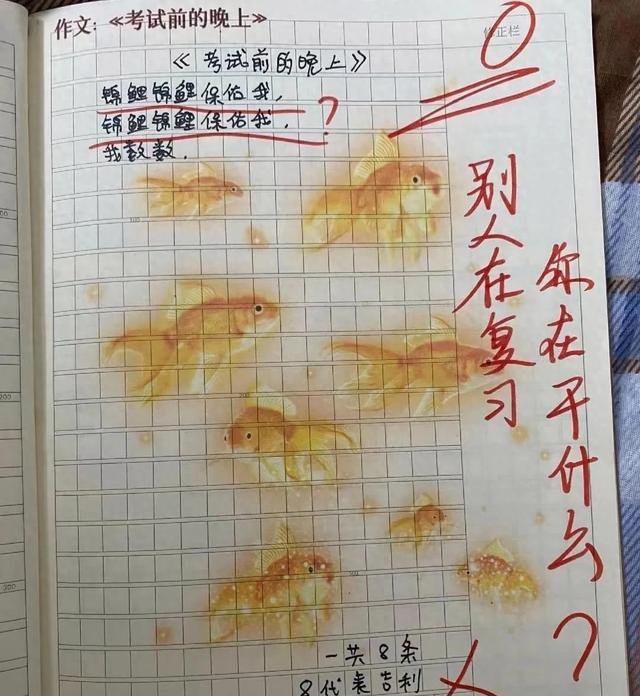 作文:《考试前的晚上》
《考试前的晚上》
锦鲤锦鲤保佑我,
锦鲤锦鲤保佑我,
我数数.
一共8条
8代表吉利
0
别人在复习
你在干什么?
?
100
200
300